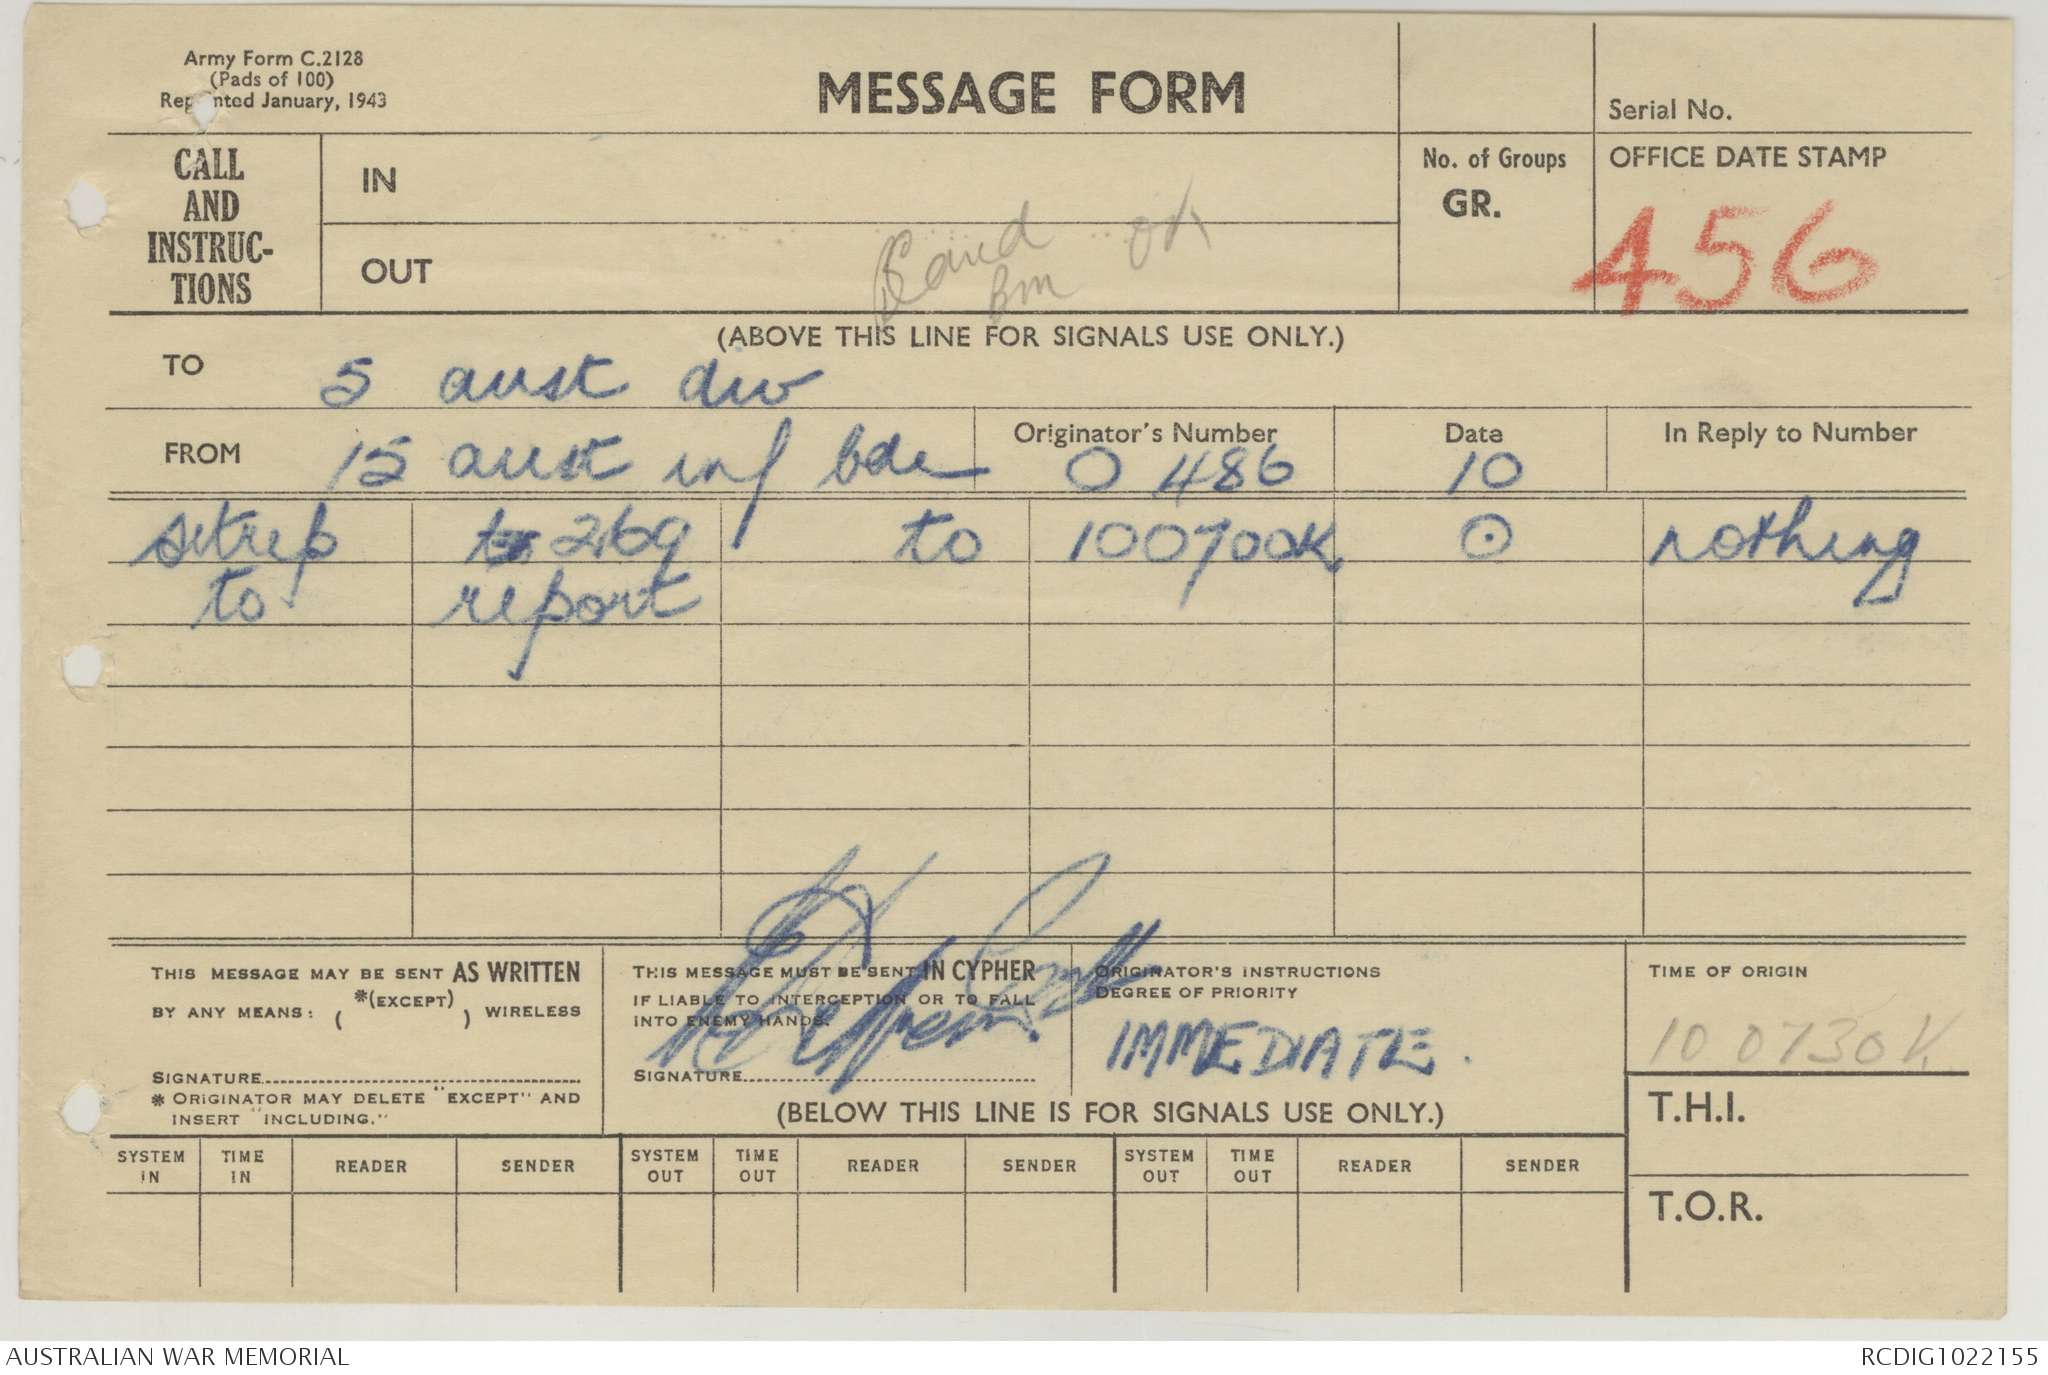 Army Form C.2128
(Pads of 100)
Reprinted January, 1943
MESSAGE FORM
Serial No.
CALL
AND
INSTRUC-
TIONS
IN
OUT
No. of Groups
GR.
OFFICE DATE STAMP
456
OK
BM
(ABOVE THIS LINE FOR SIGNALS USE ONLY.)
TO 5 aust div
FROM 15 aust inf bde
Originator's Number
0 486
Date
10
In Reply to Number
sitrep 269 to 100700K ⊙ nothing
to report
THIS MESSAGE MAY BE SENT AS WRITTEN
BY ANY MEANS: ( *(EXCEPT) ) WIRELESS
SIGNATURE
* ORIGINATOR MAY DELETE "EXCEPT" AND
INSERT "INCLUDING."
THIS MESSAGE MUST BE SENT IN CYPHER
IF LIABLE TO INTERCEPTION OR TO FALL
INTO ENEMY HANDS.
SIGNATURE
ORIGINATOR'S INSTRUCTIONS
DEGREE OF PRIORITY
IMMEDIATE.
TIME OF ORIGIN
10 0730K
(BELOW THIS LINE IS FOR SIGNALS USE ONLY.)
T.H.I.
T.O.R.
SYSTEM IN TIME IN READER SENDER SYSTEM OUT TIME OUT READER SENDER SYSTEM OUT TIME OUT READER SENDER
AUSTRALIAN WAR MEMORIAL
RCDIG1022155